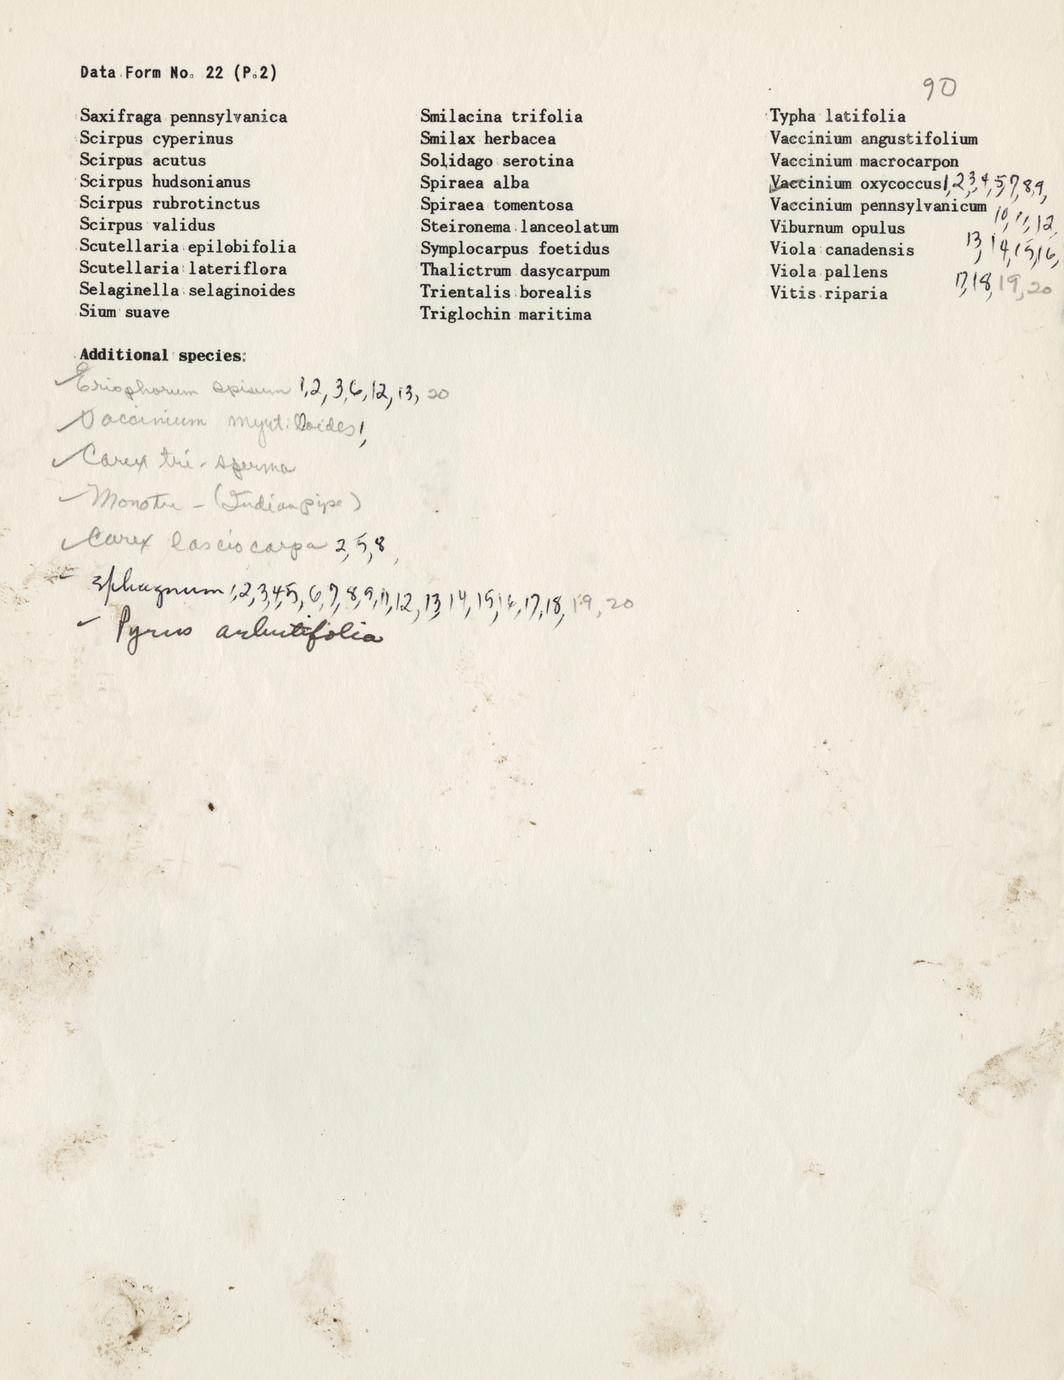 Data Form No. 22 (P.2)
90
Saxifraga pennsylvanica
Scirpus cyperinus
Scirpus acutus
Scirpus hudsonianus
Scirpus rubrotinctus
Scirpus validus
Scutellaria epilobifolia
Scutellaria lateriflora
Selaginella selaginoides
Sium suave
Smilacina trifolia
Smilax herbacea
Solidago serotina
Spiraea alba
Spiraea tomentosa
Steironema lanceolatum
Symplocarpus foetidus
Thalictrum dasycarpum
Trientalis borealis
Triglochin maritima
Typha latifolia
Vaccinium angustifolium
Vaccinium macrocarpon
Vaccinium oxycoccus 1,2,3,4,5,7,8,9,
10,11,12,
13,14,15,16,
17,18,19,20
Vaccinium pennsylvanicum
Viburnum opulus
Viola canadensis
Viola pallens
Vitis riparia
Additional species:
✓ Eriophorum 1,2,3,6,12,13,20
✓ Vaccinium myrtilloides 1,
✓ Carex tri-sperma
✓ Monotr - (Indian pipe)
✓ Carex lasciocarpa 2,5,8,
✓ Sphagnum 1,2,3,4,5,6,7,8,9,11,12,13,14,15,16,17,18,19,20
✓ Pyrus arbutifolia